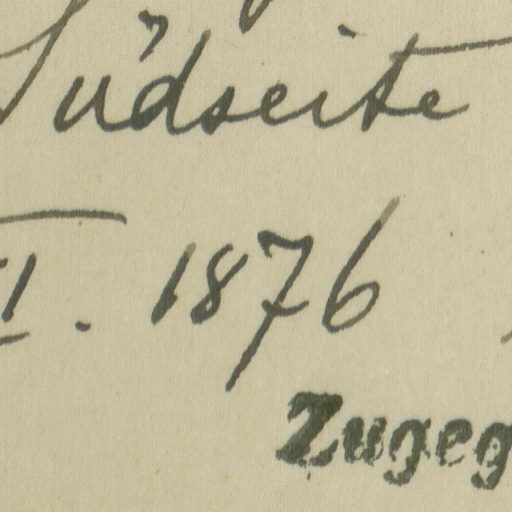 Südseite
I. 1876
Zugeg